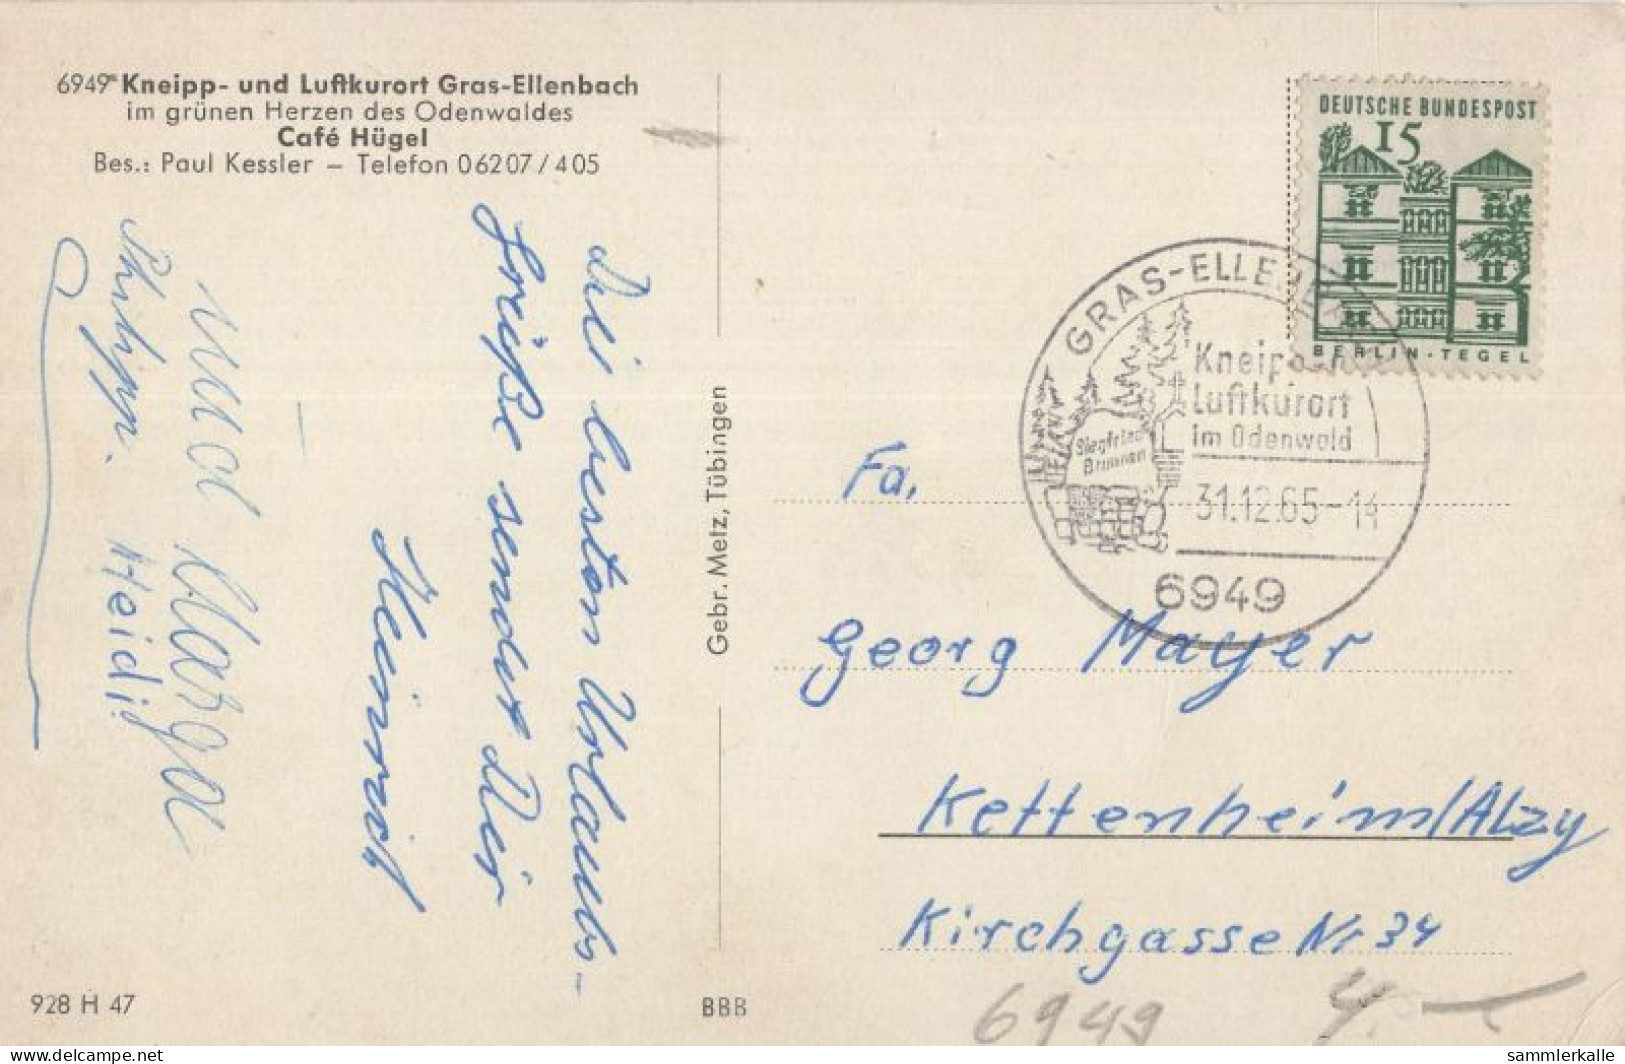 6949 Kneipp- und Luftkurort Gras-Ellenbach
im grünen Herzen des Odenwaldes
Café Hügel
Bes.: Paul Kessler – Telefon 06207/405
Die besten Urlaubs-
Grüße sendet Dir
Heinrich
und Marga
Philipp. Heidi
Gebr. Metz, Tübingen
DEUTSCHE BUNDESPOST
15
BERLIN-TEGEL
GRAS-ELLENB
Kneipp-
Luftkurort
im Odenwald
Siegfried
Brunnen
31.12.65-14
6949
Fa.
Georg Mayer
Kettenheim/Alzy
Kirchgasse Nr 34
928 H 47
BBB
6949
4.-
delcampe.net
sammlerkalle